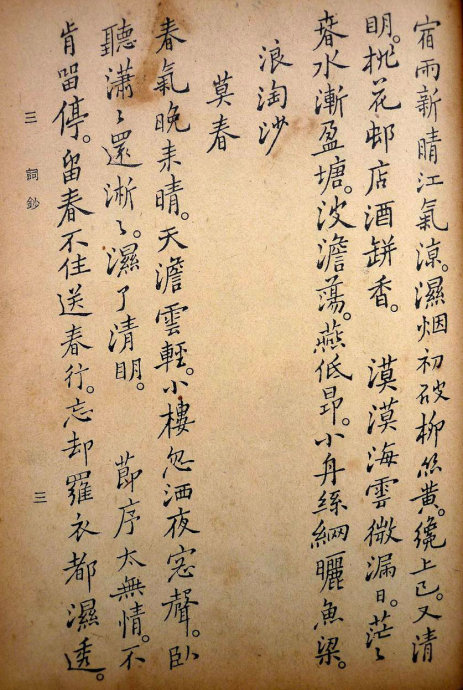 宿雨新晴江氣涼。濕烟初破柳絲黃。纔上巳。又清
明。桃花邨店酒缾香。　漠漠海雲微漏日。茫〻
春水漸盈塘。波澹蕩。燕低昂。小舟絲網曬魚梁。
浪淘沙
莫春
春氣晚来晴。天澹雲輕。小樓忽洒夜窓聲。卧
聽瀟〻還淅〻。濕了清明。　節序太無情。不
肯畱停。留春不住送春行。忘却羅衣都濕透。
三　詞鈔　三